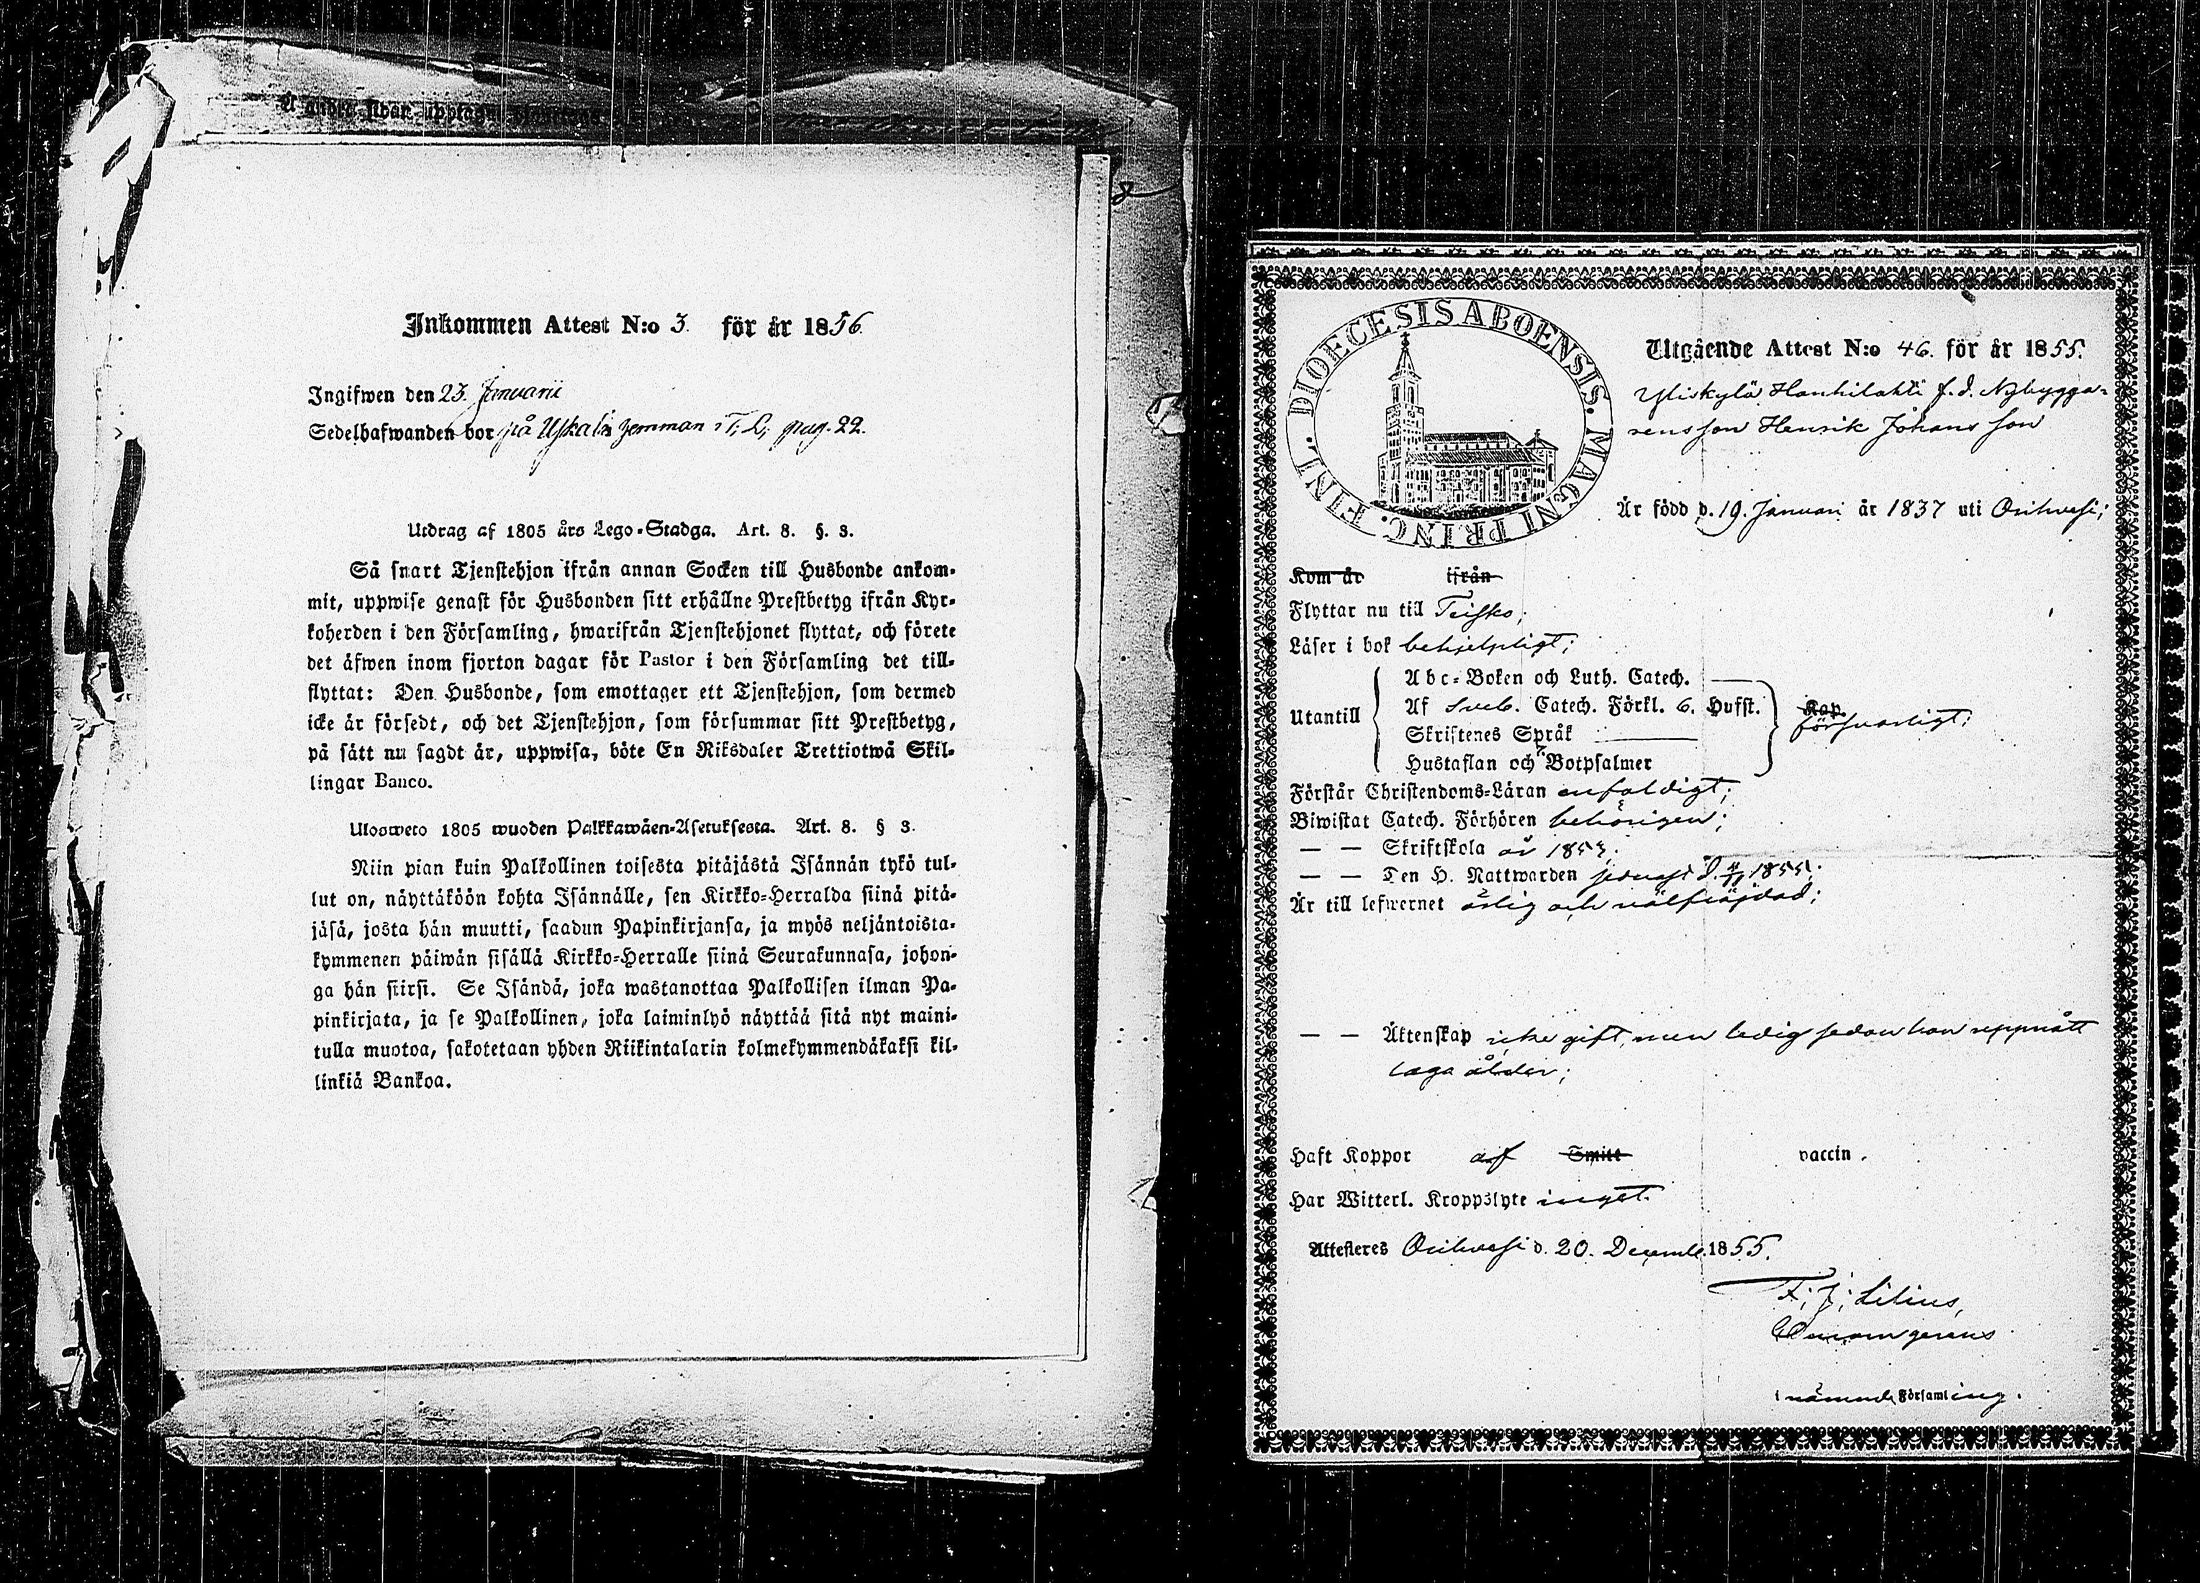 Inkommen Attest N:o 3. för år 1856.
Ingifwen den 23. Januarii
Sedelhafwanden bor på zemman i T. L. pag. 22.
Utdrag af 1805 års Lego-Stadga. Art. 8. §. 3.
Så snart Tjenstehjon ifrån annan Socken till Husbonde ankom-
mit, uppwise genast för Husbonden sitt erhållne Prestbetyg ifrån Kyr-
koherden i den Församling, hwarifrån Tjenstehjonet flyttat, och förete
det äfwen inom fjorton dagar för Pastor i den Församling det till-
flyttat: Den Husbonde, som emottager ett Tjenstehjon, som dermed
icke är försedt, och det Tjenstehjon, som försummar sitt Prestbetyg,
på sätt nu sagdt är, uppwisa, böte En Riksdaler Trettiotwå Skil-
lingar Banco.
Ulosweto 1805 wuoden Palkkawäen-Asetuksesta. Art. 8. § 3.
Niin pian kuin Palkollinen toisesta pitäjästä Isännän tykö tul-
lut on, näyttäköön kohta Isännälle, sen Kirkko-Herralda siinä pitä-
jäsä, josta hän muutti, saadun Papinkirjansa, ja myös neljäntoista-
kymmenen päiwän sisällä Kirkko-Herralle siinä Seurakunnasa, johon-
ga hän siirsi. Se Isändä, joka wastanottaa Palkollisen ilman Pa-
pinkirjata, ja se Palkollinen, joka laiminlyö näyttää sitä nyt maini-
tulla muotoa, sakotetaan yhden Riikintalarin kolmekymmendäkaksi kil-
linkiä Bankoa.
DIOECESIS ABOENSIS. MAGNI PRINC. FINL.
Utgående Attest N:o 46. för år 1855.
Yliskylä Hanhilahti f. d. Nybygga-
rensson Henrik Johansson
Är född d. 19. Januari år 1837 uti Orihvesi;
Kom år ifrån
Flyttar nu till Teisko;
Läser i bok behjelpligt;
Utantill
Abc-Boken och Luth. Catech.
Af Sveb. Catech. Förkl. 6. Hufst.
Skriftenes Språk
Hustaflan och 7 Botpsalmer
Kap.
försvarligt;
Förstår Christendoms-Läran enfaldigt;
Biwistat Catech. Förhören behörigen;
— — Skriftskola år 1853.
— — Den H. Nattwarden senast d. 4/11 1855;
Är till lefwernet ärlig och välfräjdad;
— — Äktenskap icke gift, men ledig sedan han uppnått
laga ålder;
Haft Koppor af Smitt vaccin.
Har Witterl. Kroppslyte inget.
Attesteres Orihvesi d. 20. Decemb. 1855.
F. J. Lilius,
i nämnde Församling.